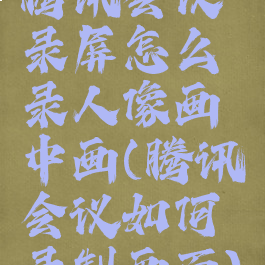 腾讯会议
录屏怎么
录人像画
中画(腾讯
会议如何
录制画面)